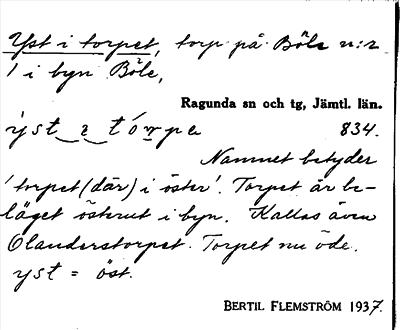 Yst i torpet, torp på Böle n:r
1 i byn Böle,
Ragunda sn och tg, Jämtl. län.
ýst ‿ ɩ ‿ tórpe 834.
Namnet betyder
'torpet (där) i öster'. Torpet är be-
läget österut i byn. Kallas även
Olanderstorpet. Torpet nu öde.
yst = öst.
BERTIL FLEMSTRÖM 1937.